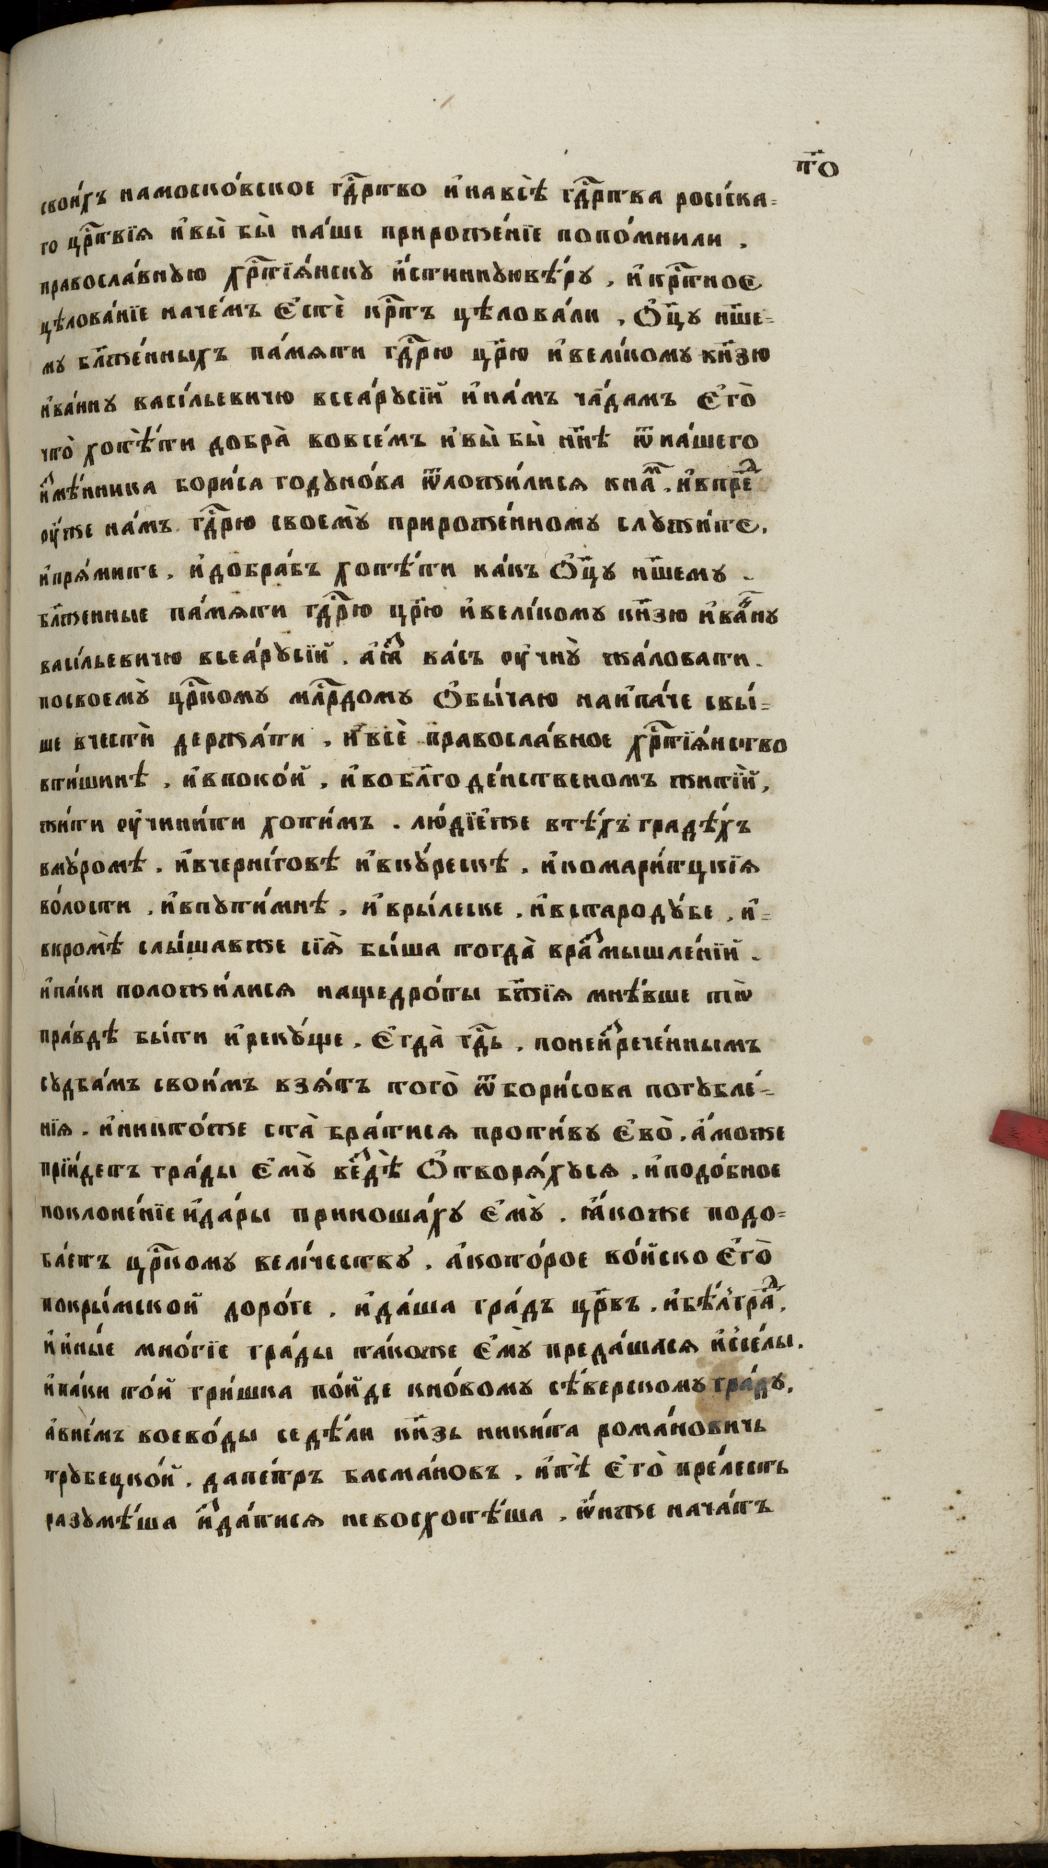 т҃о
свои́хъ намоско́вское гдⷭ҇рство и҆навсѣ̀ гдⷭ҇рства росі́ска-
го црⷭ҇твїя и҆вы̀ бы̀ на́ше прирожє́нїе попо́мнили .
правосла́вную хрⷭ҇тїя́нску и҆́стиннуювѣ́ру , и҆крⷭ҇тное
цѣлова́нїе наче́мъ є҆стѐ крⷭ҇тъ цѣлова́ли , ѻ҆ц҃у нш҃е-
му бл҃же́нныхъ па́мяти гдⷭ҇рю цр҃ю и҆вели́кому кн҃зю
ива́нну васі́льевичю всеа́русїй и҆на́мъ ча́дамъ є҆го̀
что̀ хотѣ́ти добра̀ вовсе́мъ и҆вы̀ бы̀ нн҃ѣ ѿна́шего
и҆змѣ́нника бори́са годуно́ва ѿложи́лися кна́мъ , и҆впре́д
оу҆́же на́мъ гдⷭ҇рю своему̀ прирожє́нному служи́те ,
и҆пря́мите , и҆добра́бъ хотѣ́ти ка́къ ѻ҆ц҃у нш҃ему .
бл҃женные па́мяти гдⷭ҇рю цр҃ю и҆вели́кому кн҃зю и҆ва́нну
васі́льевичю всеа́русїй . а҆я҆́зъ ва́съ оу҆чну̀ жа́ловати .
посвоему̀ црⷭ҇кому млⷭ҇рдому ѻ҆бы́чаю наи҆па́че свы́-
ше вче́сти держа́ти , и҆всѐ правосла́вное хрⷭ҇тїя́нство
вти́шинѣ , и҆впоко́й , и҆вобл҃годе́нственомъ житїи̂ ,
жи́ти оу҆чини́ти хоти́мъ . лю́дїе҆же втѣ́хъ градѣ́хъ
вму́ромѣ , и҆вчерні́говѣ и҆вку́рескѣ , и҆комари́тцкїя
во́лости , и҆впути́мнѣ , и҆вры́леске , и҆встароду́бе , и҆-
вкромѣ̀ слы́шавже сїя̀ бы́ша тогда̀ вра́змышле́нїй .
и҆па́ки положи́лися нащедро́ты бж҃їя мнѣ́вше то̀
пра́вдѣ бы́ти и҆реку́ще , є҆гда̀ гдⷭ҇ь , понеи҆зрече́ннымъ
судба́мъ свои́мъ взя́тъ того̀ ѿбори́сова погубле́-
нїя . и҆никто́же ста̀ бра́тися проти́ву є҆во̀ , а҆́може
прїи́детъ гра́ды є҆му̀ ве́здѣ ѻ҆творя́хуся , и҆подо́бное
поклоне́нїеи҆да́ры приноша́ху є҆му̀ , ꙗ҆́коже подо-
ба́етъ црⷭ҇кому вели́честву , а҆кото́рое во́йско є҆го̀
покры́мской доро́ге , и҆да́ша гра́дъ црⷭ҇въ , и҆бѣ́лгра́д ,
и҆и҆ны́е мно́гїе гра́ды та́коже є҆му̀ преда́шася и҆се́лы .
и҆па́ки то́й гри́шка по́йде кно́вому сѣ́верскому гра́ду ,
а҆вне́мъ воево́ды седѣ́ли кн҃зь ники́та рома́новичь
трубецко́й , дапе́тръ басма́новъ , и҆тѣ̀ є҆го̀ пре́лесть
разумѣ́ша и҆зда́тися невосхотѣ́ша , ѻ҆́нже нача́тъ